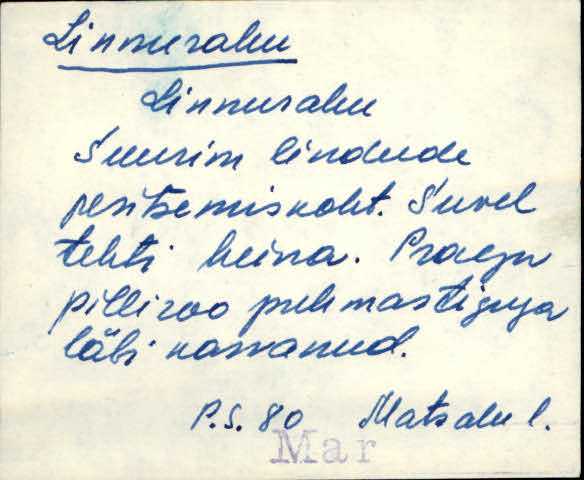 Linnurahu
Linnurahu
Suurim lindude
pesitsemiskoht. Suvel
tehti heina. Praegu
pilliroo puhmastiguga
läbi kasvanud.
P.S. 80 Matsalu l.
Mar